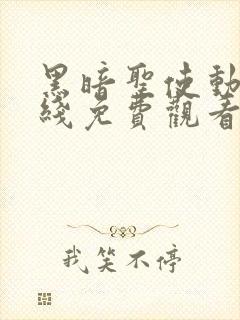 黑暗聖使動
綫免費觀看
我笑不停